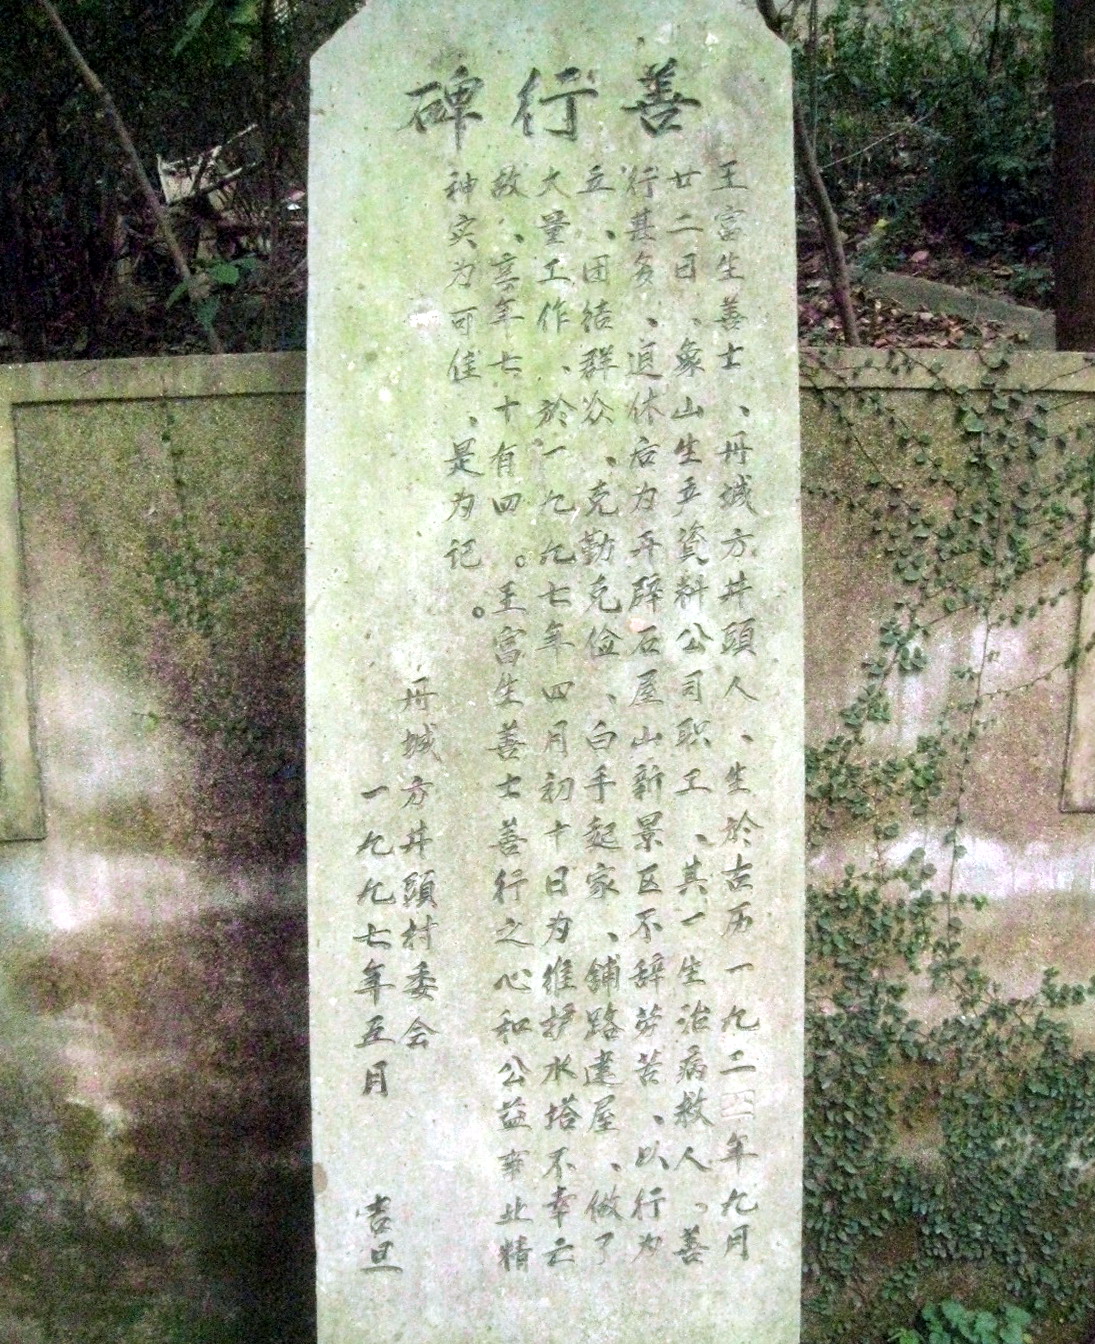 善行碑
王富生善士、丹城方井頭人、生於古历一九二四年九月
廿二日、象山生产資料公司职工、其一生治病救人、善
行甚多、退休后为开辟石屋山新景区不辞劳苦、以行为
立、团结群众、克勤克俭、白手起家、铺路建屋、做了
大量工作、於一九九七年四月初十日为维护水塔不幸亡
故、享年七十有四。王富生善士善行之心和公益事业精
神实为可佳、是为记。
丹城方井頭村委会
一九九七年五月 吉旦